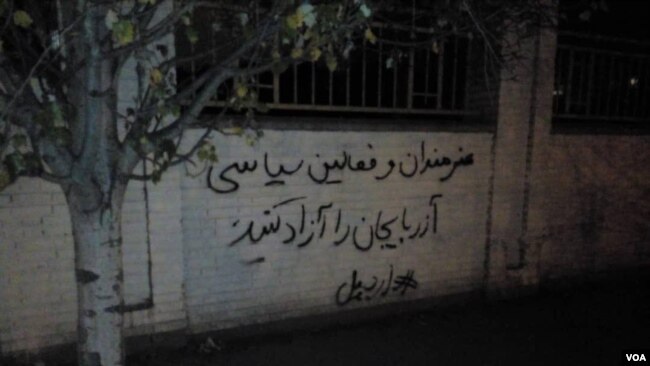 هنرمندان و فعالین سیاسی
آزربایجان را آزاد کنید
#اردبیل
VOA